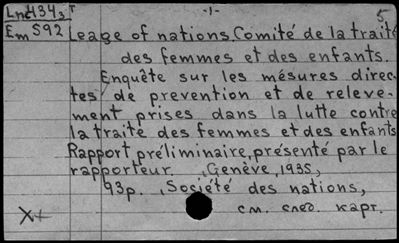 Lnc4343т -1- 5.
Em592
Leage of nations. Comité de la traité
des femmes et des enfants.
Enquête sur les mésures direc-
tes, de prevention et de releve-
ment prises dans la lutte contre
la traite des femmes et des enfants
Rapport préliminaire, présenté par le
rapporteur. , Genève, 1935,
93p. , Société des nations,
см. след. карт.
X+